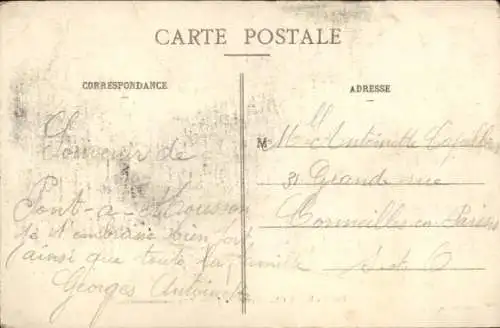 CARTE POSTALE
CORRESPONDANCE
Souvenir de
Pont-à-Mousson
Je t'embrasse bien fort
ainsi que toute la famille
Georges
ADRESSE
M Mlle Antoinette
31 Grande rue
Cormeilles en Parisis
S et O